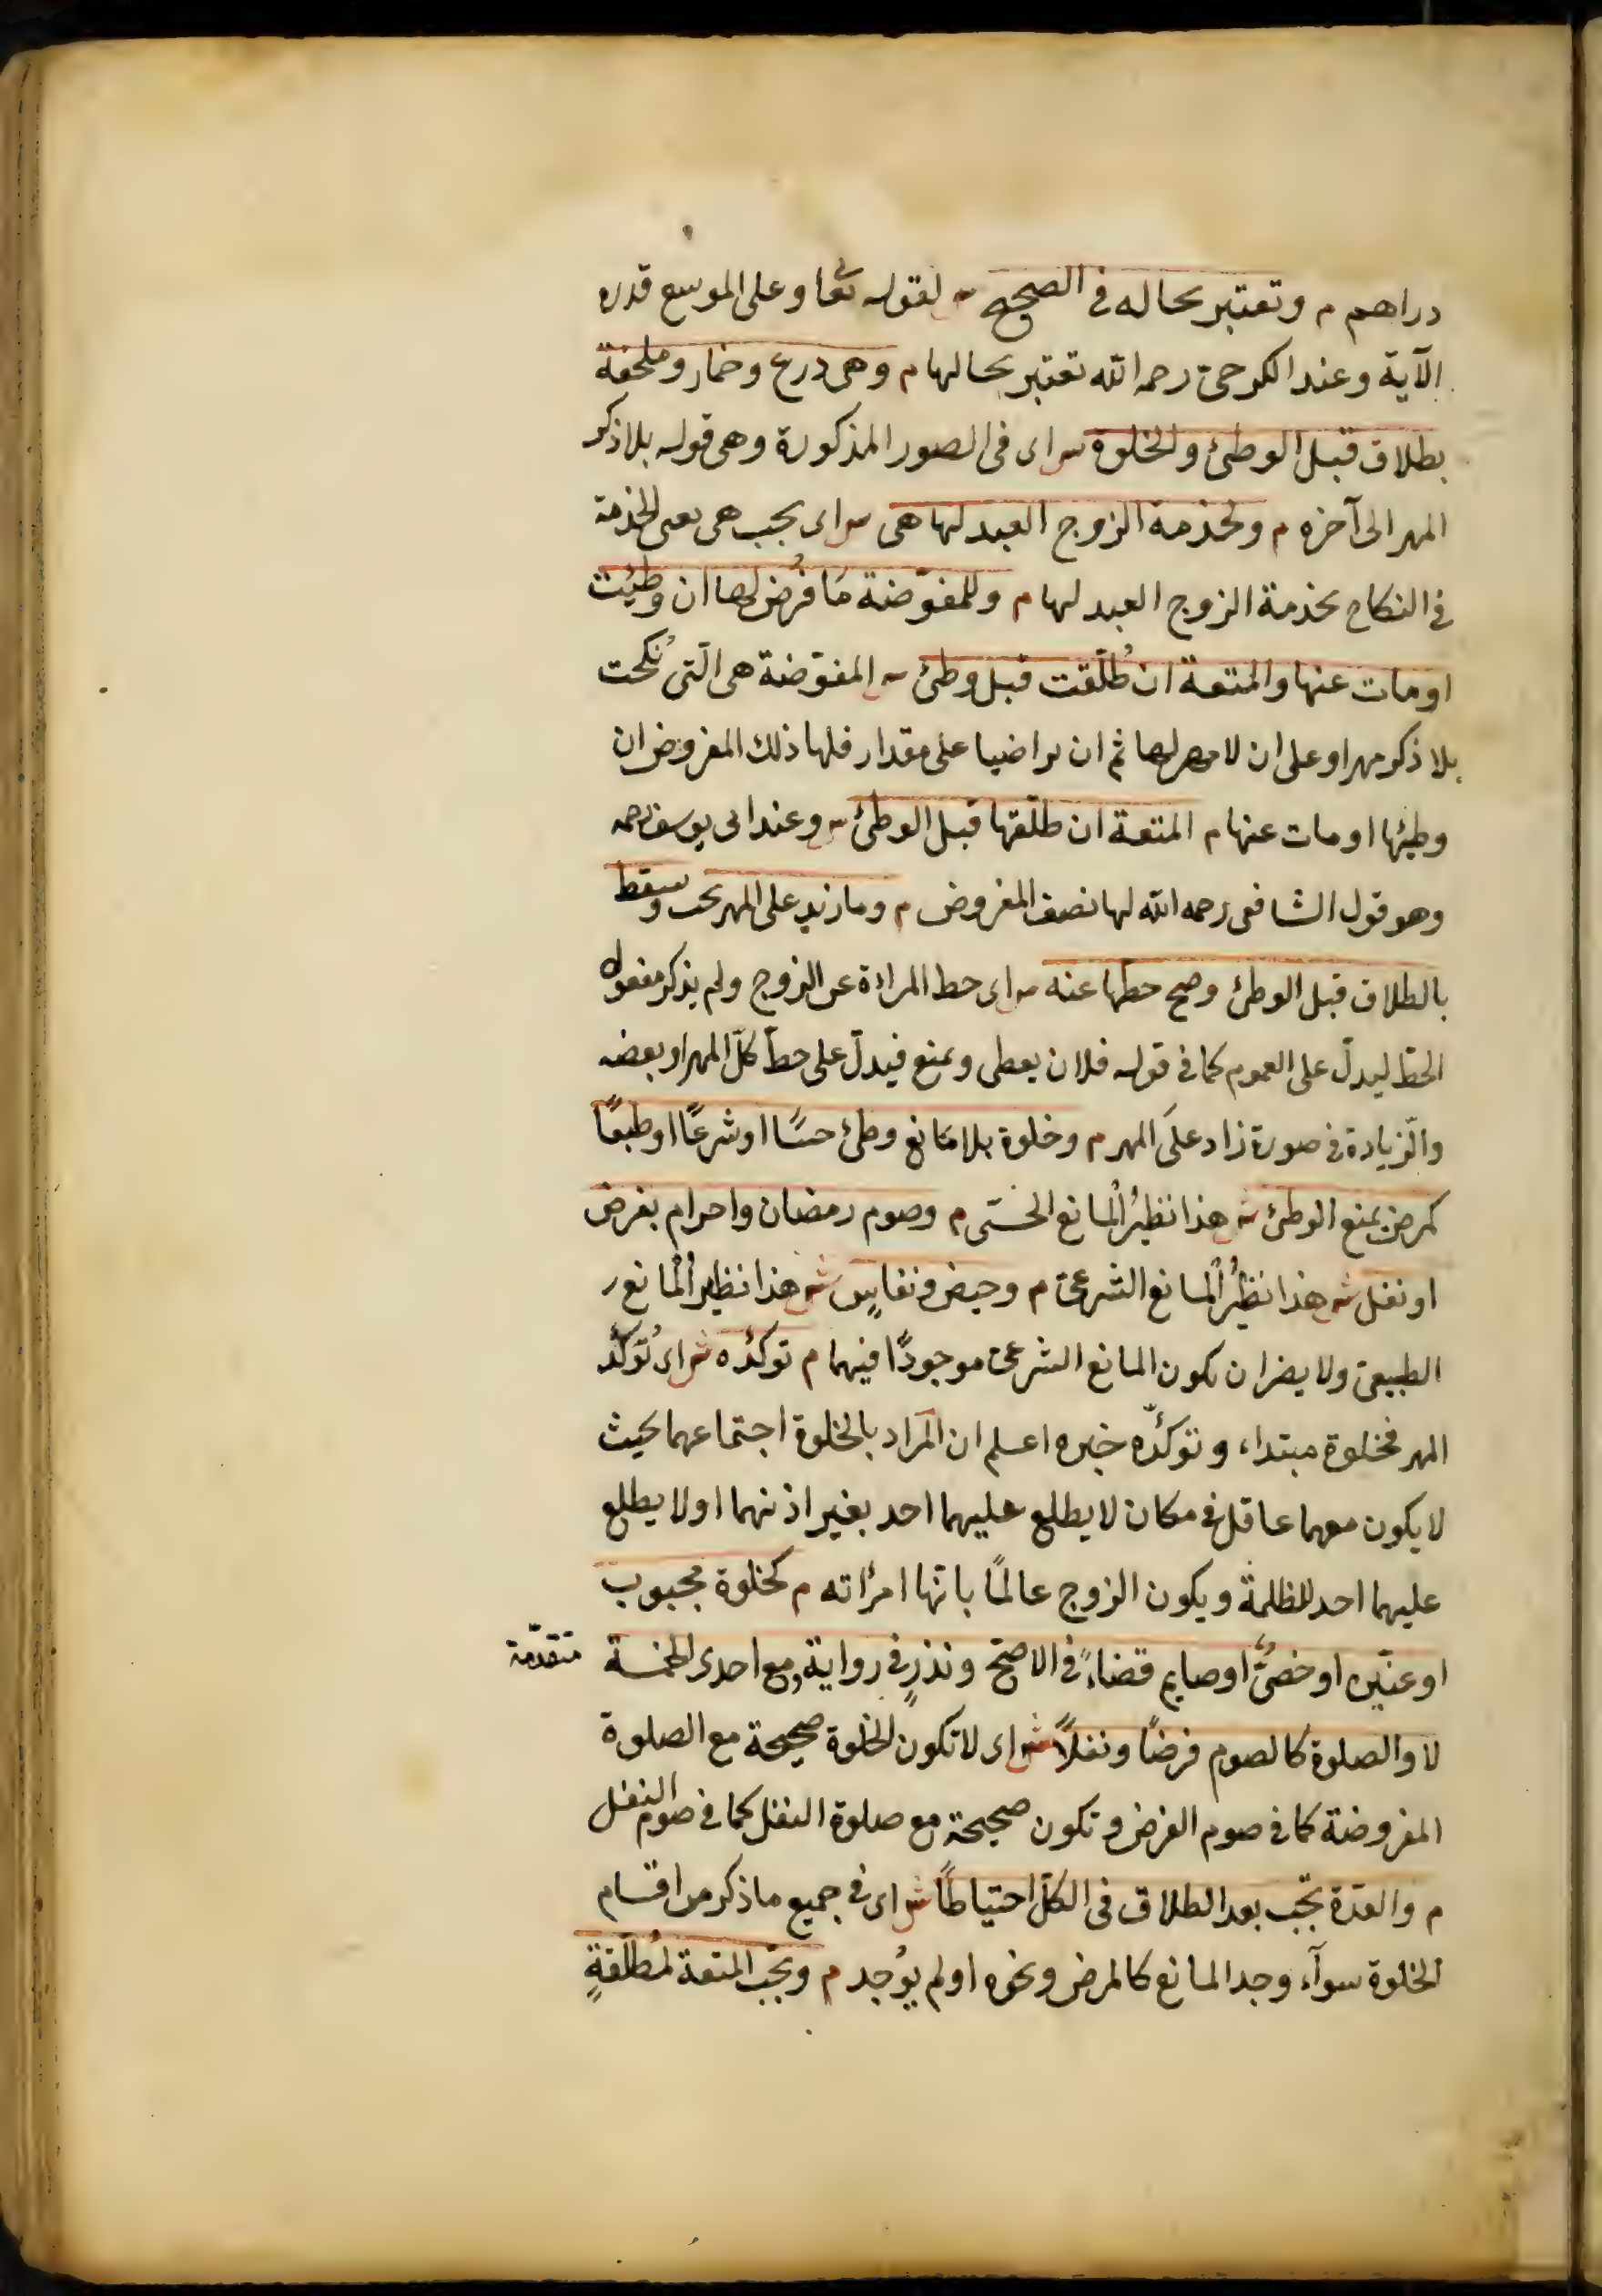 دراهم م وتعتبر بحاله في الصحيح ش لقوله تعا وعلى الموسع قدره
الآية وعند الكرخي رحمه الله تعتبر بحالها م وهي درع وخمار وملحفة
بطلاق قبل الوطئ والخلوة ش اى في الصور المذكورة وهي قوله بلا ذكر
المهر الى آخره م وبخدمة الزوج العبد لها هي ش اى يجب هي يعنى الخدمة
في النكاح بخدمة الزوج العبد لها م وللمفوّضة مَا فُرض لها ان وطِئت
او مات عنها والمتعة ان طُلّقت قبل وطئ ش المفوّضة هي الّتى نُكحت
بلا ذكر مهر او على ان لا مهر لها ثم ان تراضيا على مقدار فلها ذلك المفروض ان
وطئها او مات عنها م المتعة ان طلّقها قبل الوطئ ش وعند ابى يوسف رحمه
وهو قول الشافعى رحمه الله لها نصف المفروض م وما زيد على المهر يجب وسقط
بالطلاق قبل الوطئ وصح حطّها عنه ش اى حط المراءة عن الزوج ولم يذكر مفعول
الحطّ ليدلّ على العموم كما في قوله فلان يعطى ويمنع فيدلّ على حطّ كلّ المهر او بعضه
والزّيادة في صورة زاد علَى المهر م وخلوة بلا مَانع وطئ حسًا او شرعًا او طبعًا
كمرض يمنع الوطئ ش هذا نظيرُ المانع الحسّى م وصوم رمضان واحرام بفرض
او نفل ش هذا نظيرُ المانع الشرعىّ م وحيض ونفاسٍ ش هذا نظيرُ المانع ر
الطبيعىّ ولا يضر ان يكون المانع الشرعىّ موجودًا فيهما م توكّده ش اى تُؤكّد
المهر فخلوة مبتداء وتؤكدّه خبره اعلم ان المَراد بالخلوة اجتماعهما بحيث
لا يكون معهما عاقل في مكان لا يطلع عليهما احد بغير اذنهما او لا يطلع
عليهما احد للظلمة ويكون الزوج عالمًا بانّها امرأته م كخلوة مجبوب
او عنّين او خصىٍّ او صايم قضاءً في الاصحّ ونذرٍ في رواية ومع احدى الخمسة متقدّمة
لا والصلوة كالصوم فرضًا ونفلًا ش اى لا تكون الخلوة صحيحة مع الصلوة
المفروضة كما في صوم الفرض وتكون صحيحة مع صلوة النفل كما في صوم النفل
م والعدّة تجب بعد الطلاق في الكلّ احتياطًا ش اى في جميع ما ذكر من اقسام
الخلوة سوآء وجد المانع كالمرض ونحوه او لم يوُجد م وتجب المتعة لمُطلّقةٍ